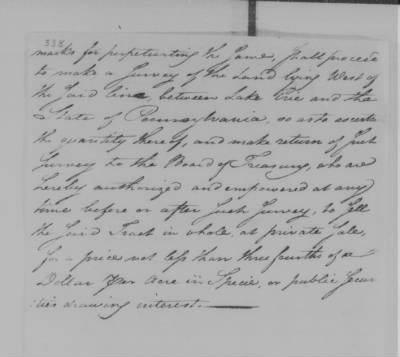 338
marks for perpetuating the same, shall proceed
to make a Survey of the Land lying West of
the said line, between Lake Erie and the
State of Pennsylvania, so as to ascertain
the quantity thereof, and make return of such
Survey to the Board of Treasury, who are
hereby authorized and empowered at any
time before or after such Survey, to sell
the said Tract in whole, at private sale,
for a price not less than three fourths of a
Dollar per Acre in Specie, or public Secur
ities drawing interest.